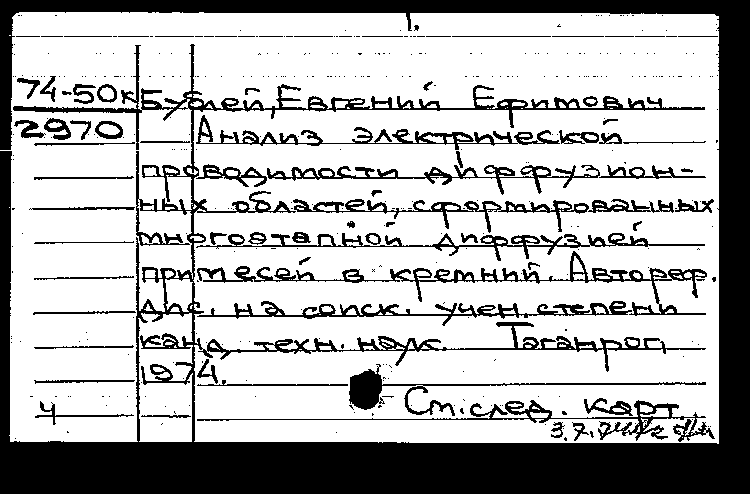 1.
74-50к Бублей, Евгений Ефимович
2970 Анализ электрической
проводимости диффузион-
ных областей, сформированных
многоэтапной диффузией
примесей в кремний. Автореф.
дис. на соиск. учен. степени
канд. техн. наук. Таганрог,
1974.
Ч См. след. карт.
3.7.74